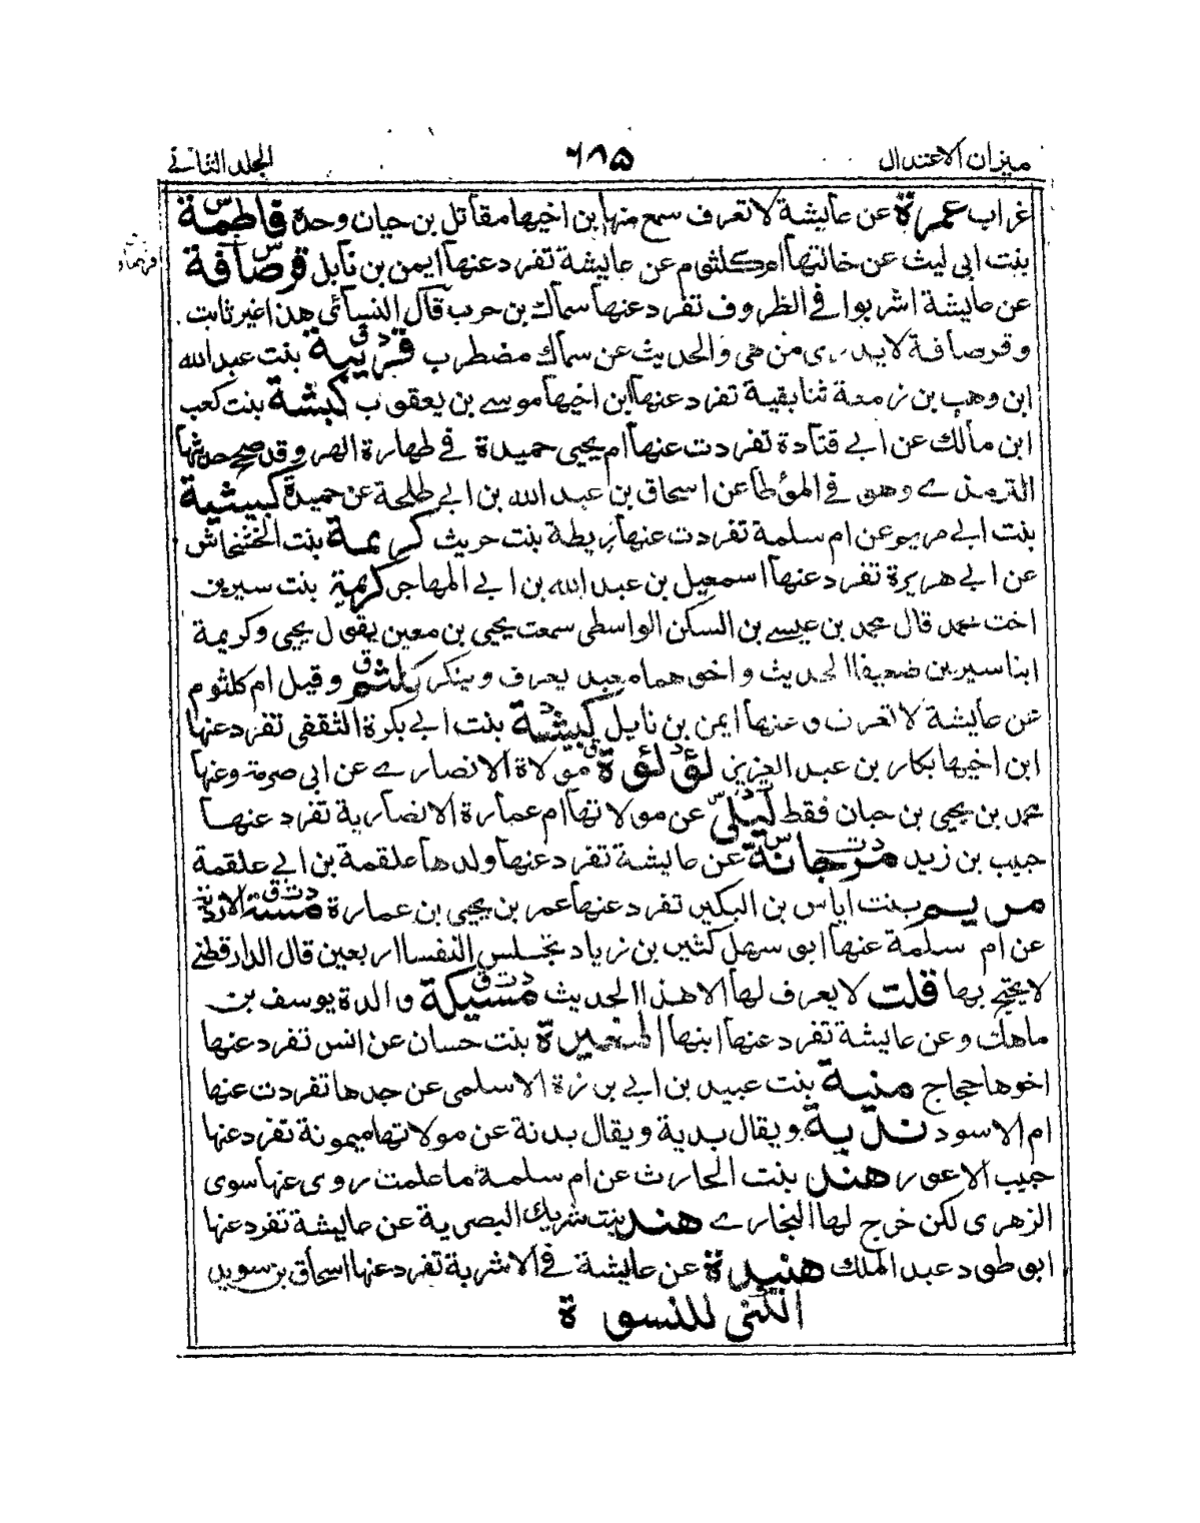 ميزان الاعتدال ٦٨٥ الجلد الثاني
غراب عمرة عن عايشة لا تعرف سمع منها ابن اخيها مقاتل بن حيان وحده فاطمة
بنت ابي ليث عن خالتها ام كلثوم عن عايشة تفرد عنها ايمن بن نابل قرصافة
عن عايشة اشربوا في الظروف تفرد عنها سماك بن حرب قال النسائي هذا غير ثابت
وقرصافة لا يدرى من هي والحديث عن سماك مضطرب قريبة بنت عبد الله
ابن وهب بن زمعة ثنا بقية تفرد عنها ابن اخيها موسى بن يعقوب كبشة بنت كعب
ابن مالك عن ابي قتادة تفردت عنها ام يحيى حميدة في طهارة الهر وقد صحح حديثها
الترمذي وهو في المؤطا عن اسحاق بن عبد الله بن ابي طلحة عن حميدة كبيشية
بنت ابي مريم عن ام سلمة تفردت عنها ريطة بنت حريث كريمة بنت الخشخاش
عن ابي هريرة تفرد عنها اسمعيل بن عبد الله بن ابي المهاجر كريمة بنت سيرين
اخت محمد قال محمد بن عيسى بن السكن الواسطى سمعت يحيى بن معين يقول يحيى وكريمة
ابنا سيرين ضعيفا الحديث واخوهما معبد يعرف وينكر كلثم وقيل ام كلثوم
عن عايشة لا تعرف وعنها ايمن بن نابل كبشة بنت ابي بكرة الثقفي تفرد عنها
ابن اخيها بكار بن عبد العزيز لؤلؤة مولاة الانصاري عن ابي صرمة وعنها
محمد بن يحيى بن حبان فقط ليلى عن مولاتها ام عمارة الانصارية تفرد عنها
حبيب بن زيد مرجانة عن عايشة تفرد عنها ولدها علقمة بن ابي علقمة
مريم بنت اياس بن البكير تفرد عنها عمر بن يحيى بن عمارة مسة الازدية
عن ام سلمة عنها ابو سهل كثير بن زياد تجلس النفسا اربعين قال الدارقطني
لا يحتج بها قلت لا يعرف لها الا هذا الحديث مسيكة والدة يوسف بن
ماهك وعن عايشة تفرد عنها ابنها المغيرة بنت حسان عن انس تفرد عنها
اخوها حجاج منية بنت عبيد بن ابي برزة الاسلمى عن جدها تفردت عنها
ام الاسود ندبة ويقال بدية ويقال بدنة عن مولاتها ميمونة تفرد عنها
حبيب الاعور هند بنت الحارث عن ام سلمة ما علمت روى عنها سوى
الزهرى لكن خرج لها البخاري هند بنت شريك البصرية عن عايشة تفرد عنها
ابو طود عبد الملك هنيدة عن عايشة في الاشربة تفرد عنها اسحاق بن سويد
الكنى للنسوة